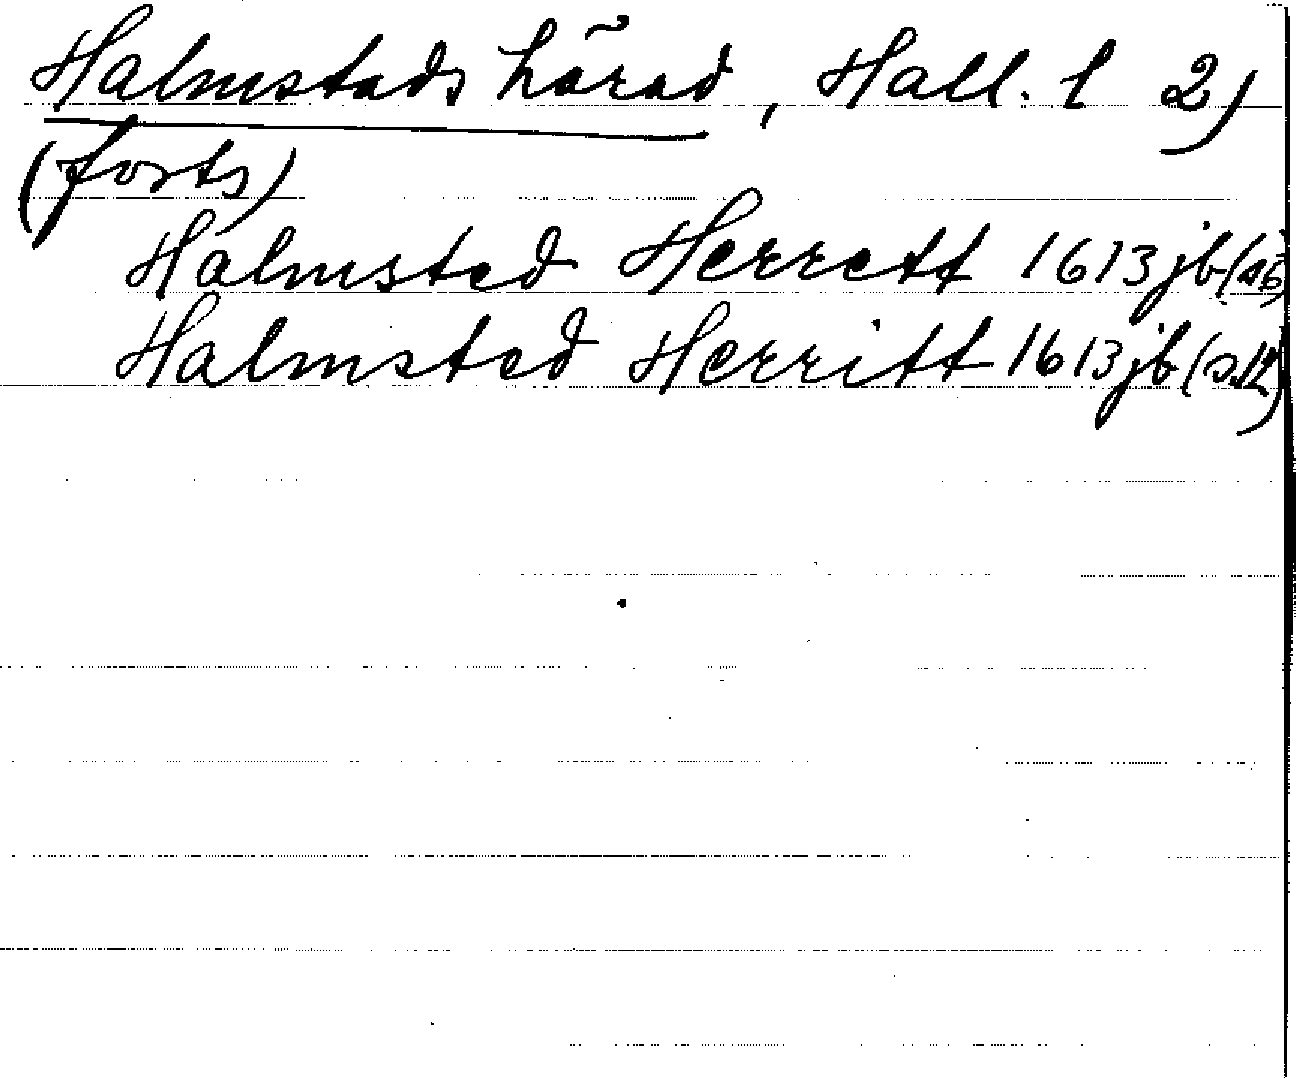 Halmstads härad, Hall. l 2)
(forts)
Halmsted Herrett 1613 jb (s6)
Halmsted Herritt 1613 jb (s.12)